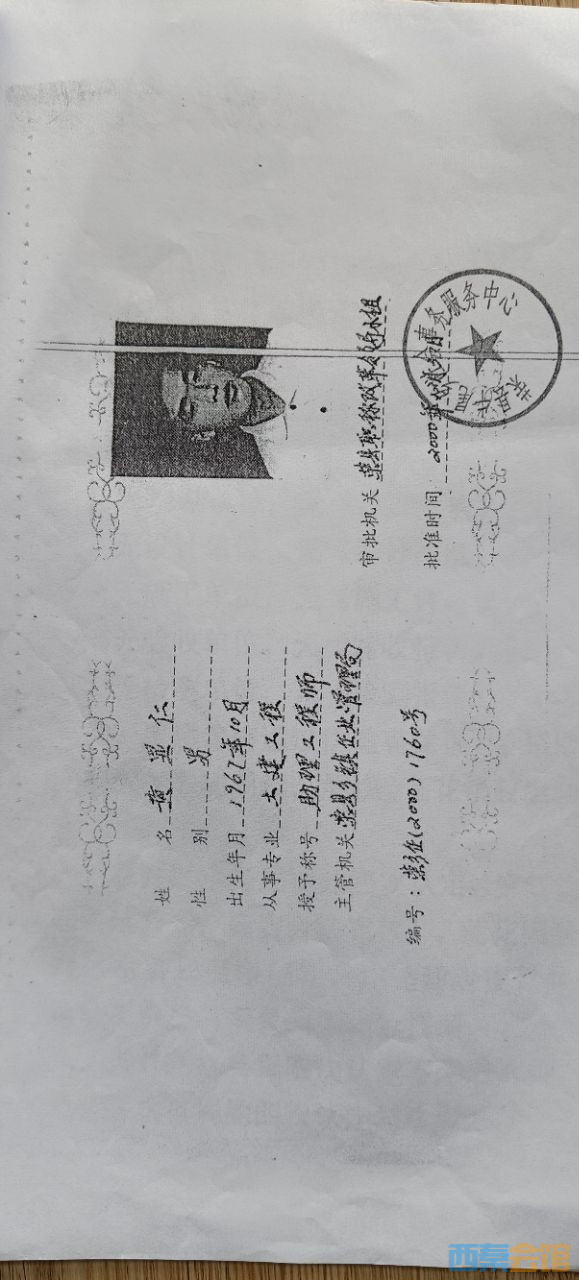 姓 名 黄显仁
性 别 男
出生年月 1967年10月
从事专业 土建工程
授予称号 助理工程师
主管机关 荣县乡镇企业管理局
编号：荣乡企(2000)1760号
审批机关 荣县职称改革领导小组
批准时间 2000年
人事服务中心
西秦会馆